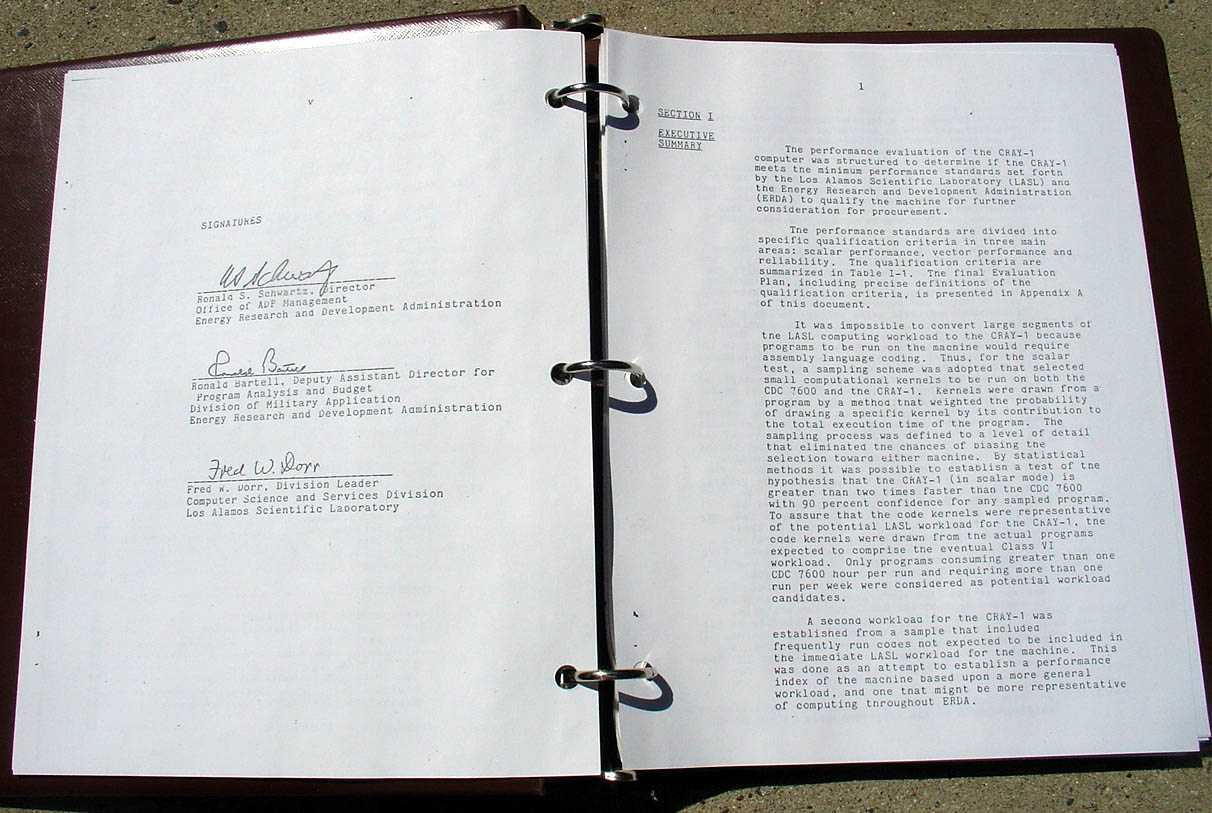 v
SIGNATURES
Ronald S. Schwartz, Director
Office of ADP Management
Energy Research and Development Administration
Ronald Bartell
Ronald Bartell, Deputy Assistant Director for
Program Analysis and Budget
Division of Military Application
Energy Research and Development Administration
Fred W. Dorr
Fred W. Dorr, Division Leader
Computer Science and Services Division
Los Alamos Scientific Laboratory
1
SECTION I
EXECUTIVE
SUMMARY
The performance evaluation of the CRAY-1
computer was structured to determine if the CRAY-1
meets the minimum performance standards set forth
by the Los Alamos Scientific Laboratory (LASL) and
the Energy Research and Development Administration
(ERDA) to qualify the machine for further
consideration for procurement.
The performance standards are divided into
specific qualification criteria in three main
areas: scalar performance, vector performance and
reliability. The qualification criteria are
summarized in Table I-1. The final Evaluation
Plan, including precise definitions of the
qualification criteria, is presented in Appendix A
of this document.
It was impossible to convert large segments of
the LASL computing workload to the CRAY-1 because
programs to be run on the machine would require
assembly language coding. Thus, for the scalar
test, a sampling scheme was adopted that selected
small computational kernels to be run on both the
CDC 7600 and the CRAY-1. Kernels were drawn from a
program by a method that weighted the probability
of drawing a specific kernel by its contribution to
the total execution time of the program. The
sampling process was defined to a level of detail
that eliminated the chances of biasing the
selection toward either machine. By statistical
methods it was possible to establish a test of the
hypothesis that the CRAY-1 (in scalar mode) is
greater than two times faster than the CDC 7600
with 90 percent confidence for any sampled program.
To assure that the code kernels were representative
of the potential LASL workload for the CRAY-1, the
code kernels were drawn from the actual programs
expected to comprise the eventual Class VI
workload. Only programs consuming greater than one
CDC 7600 hour per run and requiring more than one
run per week were considered as potential workload
candidates.
A second workload for the CRAY-1 was
established from a sample that included
frequently run codes not expected to be included in
the immediate LASL workload for the machine. This
was done as an attempt to establish a performance
index of the machine based upon a more general
workload, and one that might be more representative
of computing throughout ERDA.